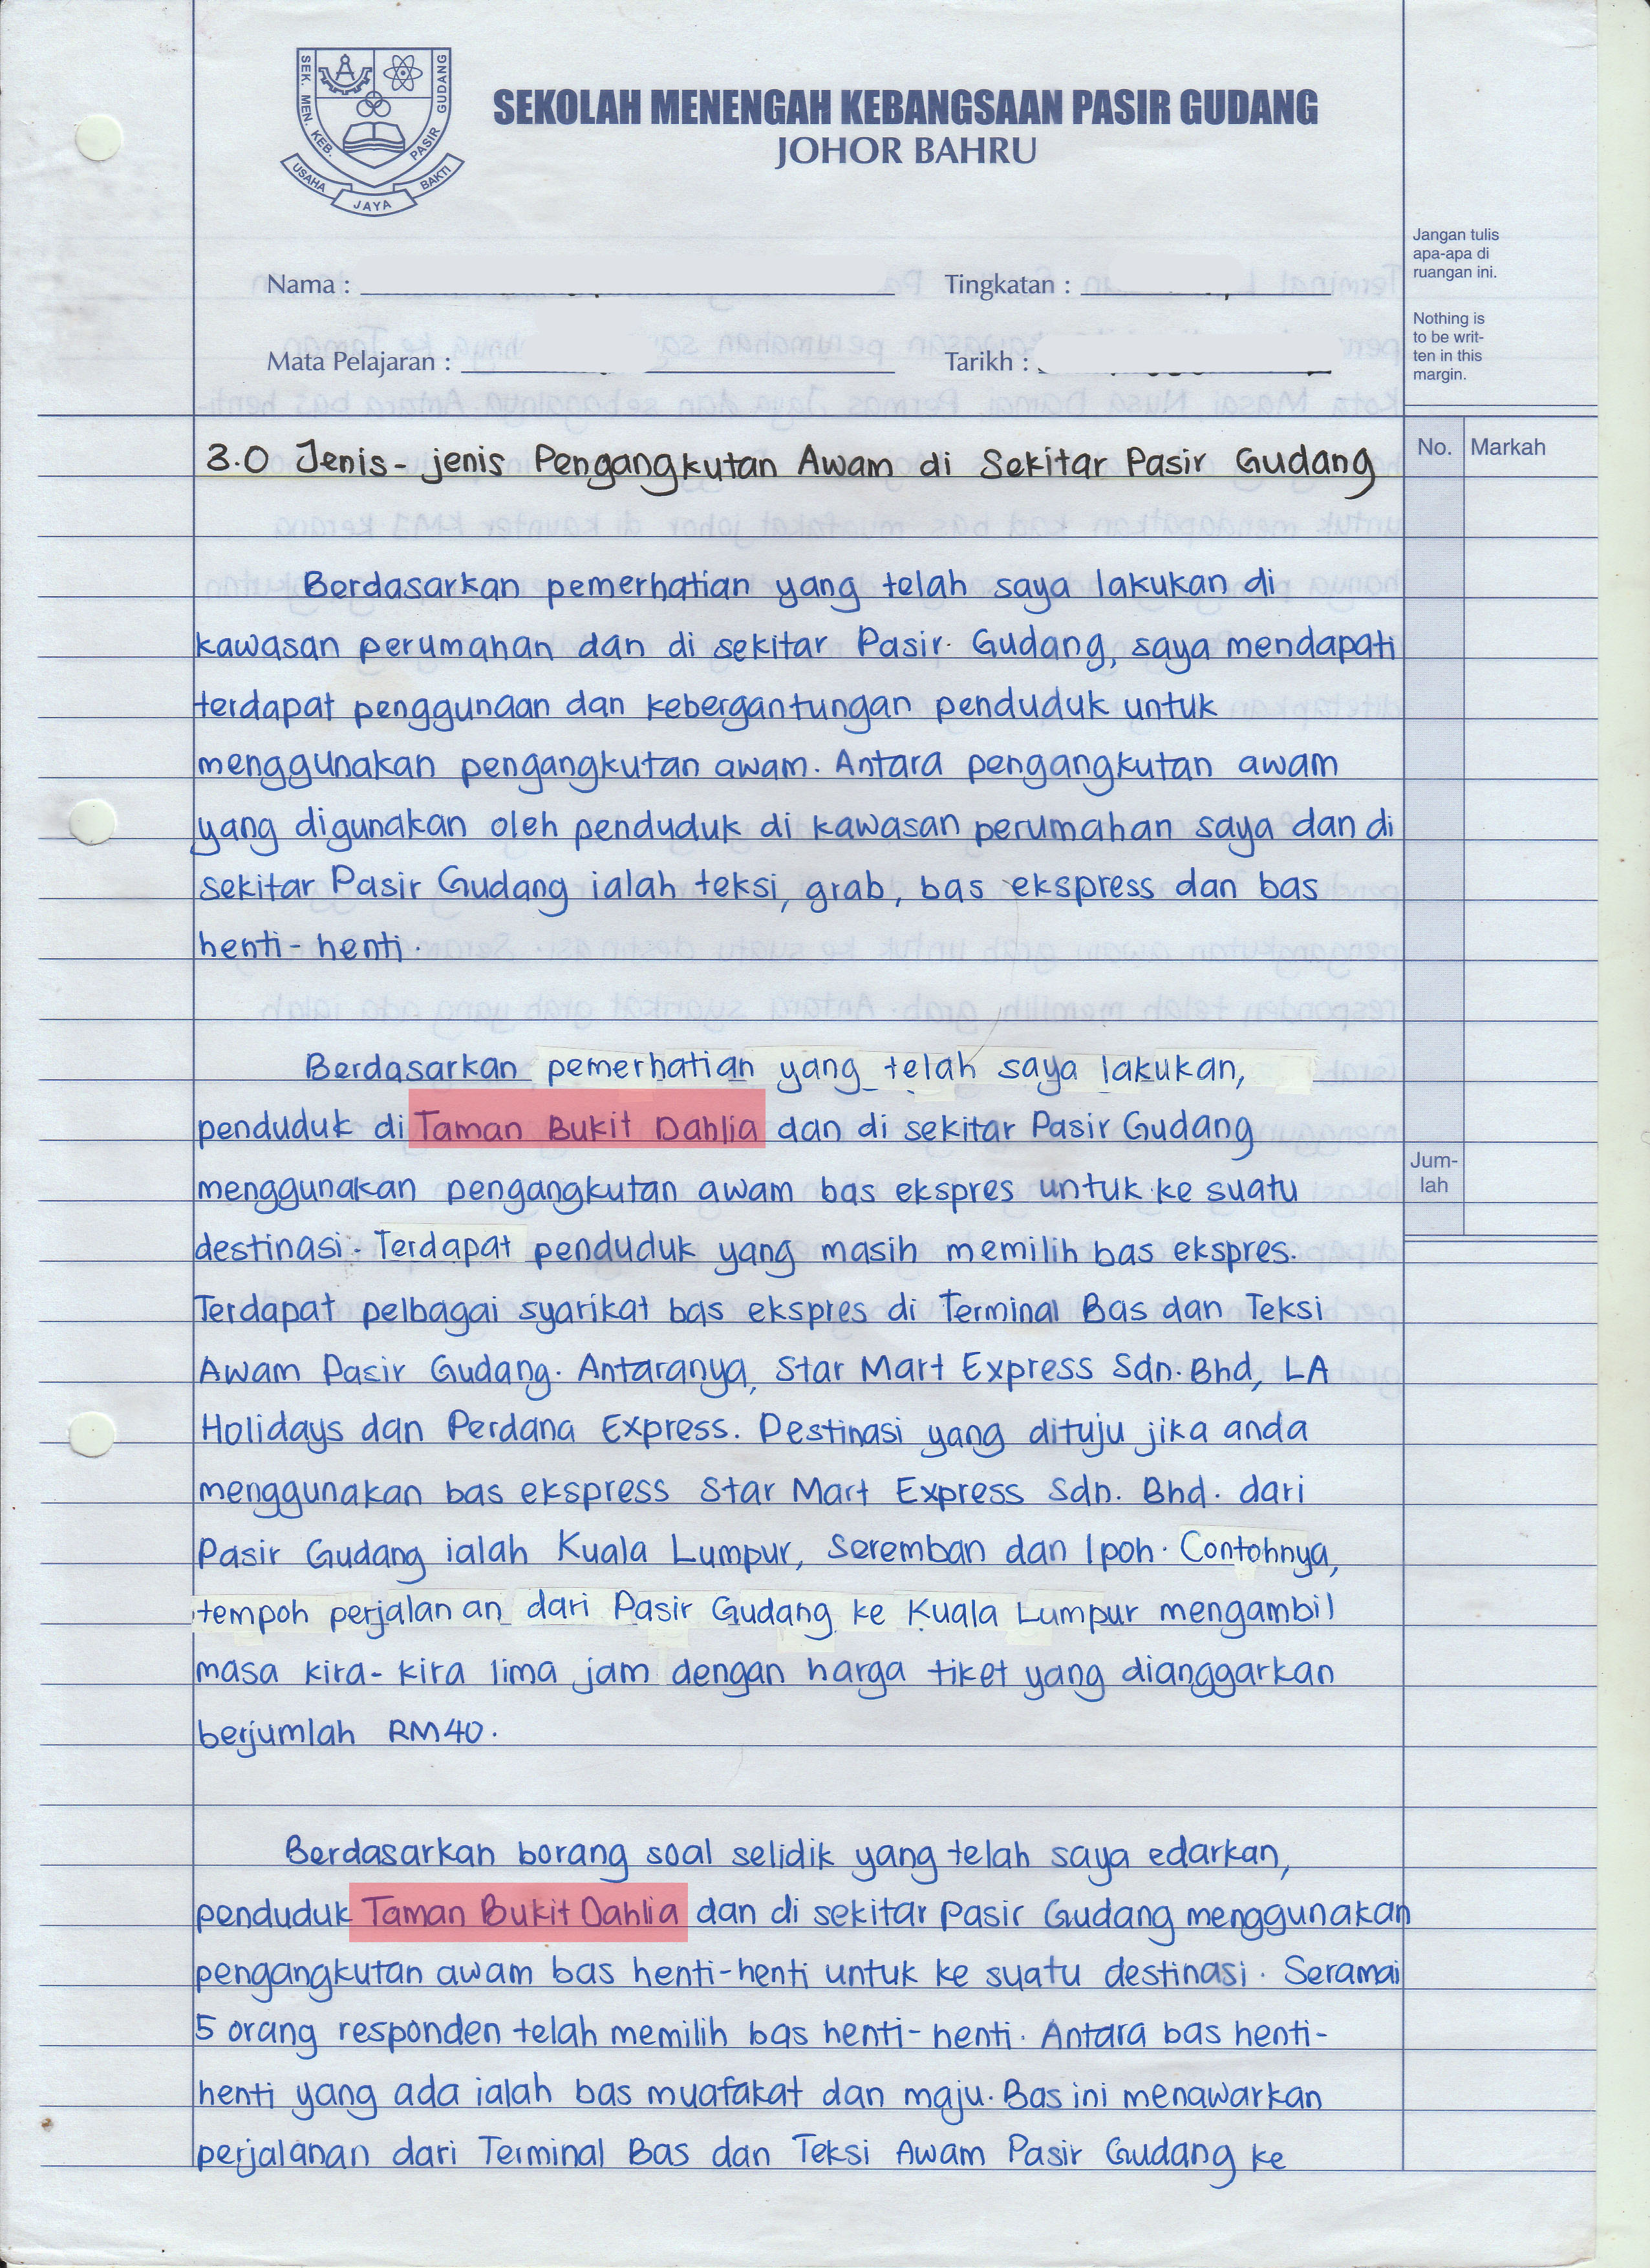 SEK. MEN. KEB. PASIR GUDANG
USAHA JAYA BAKTI
SEKOLAH MENENGAH KEBANGSAAN PASIR GUDANG
JOHOR BAHRU
Jangan tulis
apa-apa di
ruangan ini.
Nothing is
to be writ-
ten in this
margin.
Nama :
Tingkatan :
Mata Pelajaran :
Tarikh :
No. Markah
3.0 Jenis-jenis Pengangkutan Awam di Sekitar Pasir Gudang
Berdasarkan pemerhatian yang telah saya lakukan di
kawasan perumahan dan di sekitar Pasir Gudang, saya mendapati
terdapat penggunaan dan kebergantungan penduduk untuk
menggunakan pengangkutan awam. Antara pengangkutan awam
yang digunakan oleh penduduk di kawasan perumahan saya dan di
sekitar Pasir Gudang ialah teksi, grab, bas ekspress dan bas
henti-henti.
Berdasarkan pemerhatian yang telah saya lakukan,
penduduk di Taman Bukit Dahlia dan di sekitar Pasir Gudang
menggunakan pengangkutan awam bas ekspres untuk ke suatu
destinasi. Terdapat penduduk yang masih memilih bas ekspres.
Terdapat pelbagai syarikat bas ekspres di Terminal Bas dan Teksi
Awam Pasir Gudang. Antaranya, Star Mart Express Sdn. Bhd, LA
Holidays dan Perdana Express. Destinasi yang dituju jika anda
menggunakan bas ekspress Star Mart Express Sdn. Bhd. dari
Pasir Gudang ialah Kuala Lumpur, Seremban dan Ipoh. Contohnya,
tempoh perjalanan dari Pasir Gudang ke Kuala Lumpur mengambil
masa kira-kira lima jam dengan harga tiket yang dianggarkan
berjumlah RM40.
Berdasarkan borang soal selidik yang telah saya edarkan,
penduduk Taman Bukit Dahlia dan di sekitar Pasir Gudang menggunakan
pengangkutan awam bas henti-henti untuk ke suatu destinasi. Seramai
5 orang responden telah memilih bas henti-henti. Antara bas henti-
henti yang ada ialah bas muafakat dan maju. Bas ini menawarkan
perjalanan dari Terminal Bas dan Teksi Awam Pasir Gudang ke
Jum-
lah